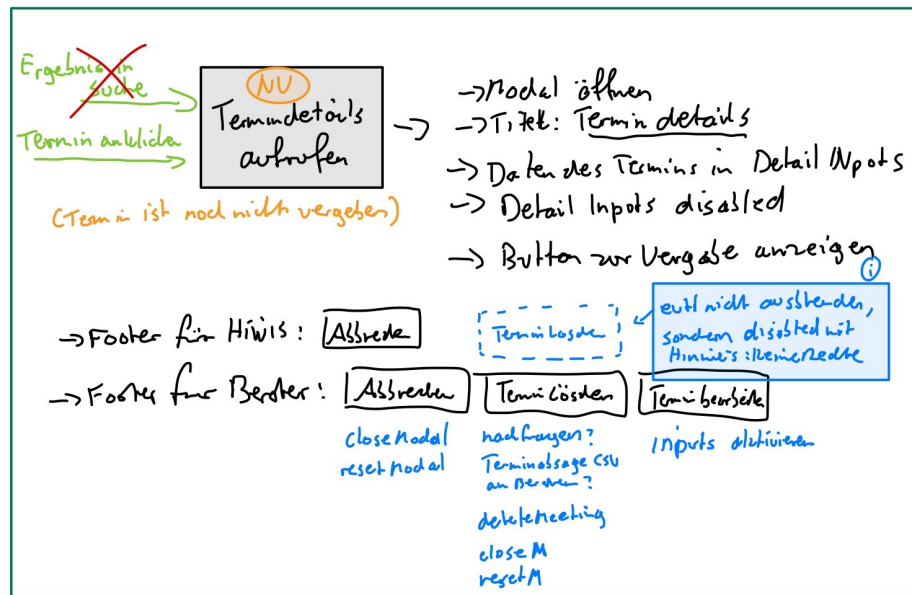 Ergebnis in
Suche
Termin anklicken
NV
Termindetails
aufrufen
(Termin ist noch nicht vergeben)
-> Modal öffnen
-> Titel: Termin details
-> Daten des Termins in Detail INputs
-> Detail Inputs disabled
-> Button zur Vergabe anzeigen
i
-> Footer für Hiwis: Abbrechen
Termin Löschen
evtl nicht ausblenden,
sondern disabled mit
Hinweis: Keine Rechte
-> Footer für Berater: Abbrechen Termin Löschen Termin bearbeiten
close Modal
reset Modal
nachfragen?
Terminabsage CSV
an Berater?
deleteMeeting
close M
reset M
Inputs aktivieren